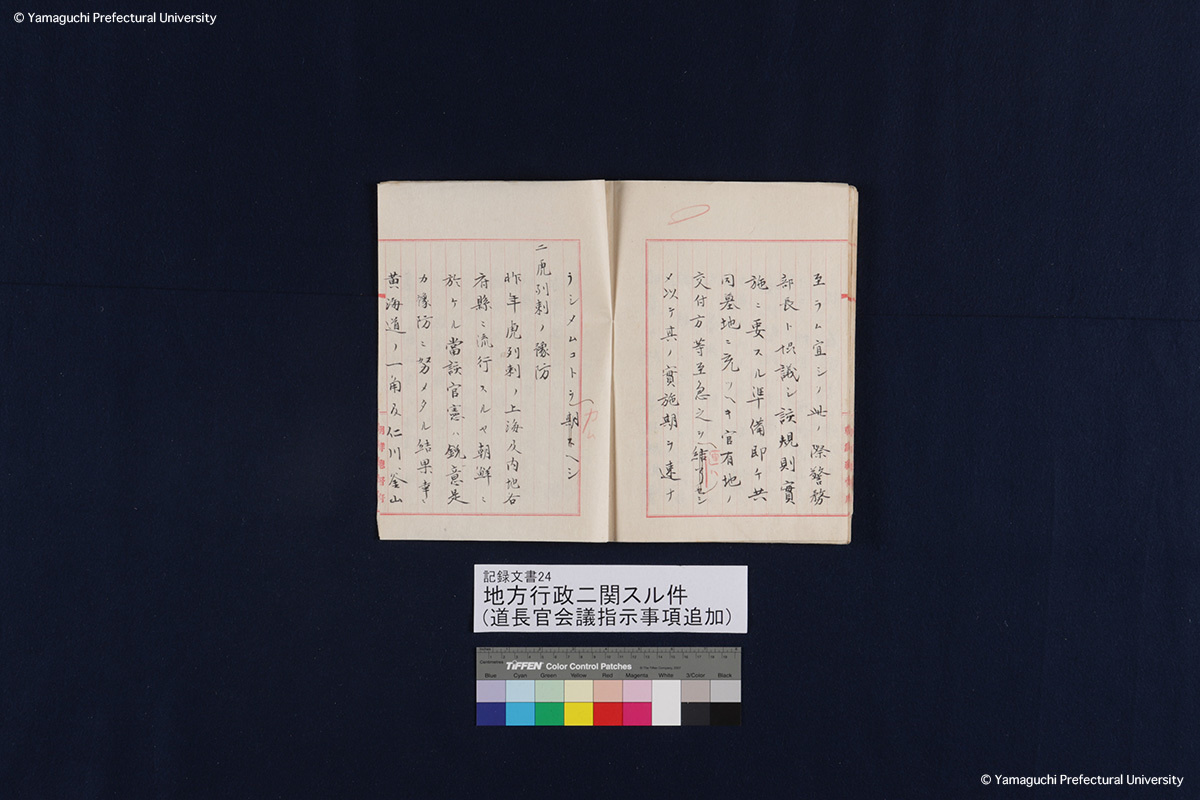 © Yamaguchi Prefectural University
至ラム宜シク此ノ際警務
部長ト協議シ該規則實
施ニ要スル準備即チ共
同墓地ニ充ツヘキ官有地ノ
交付方等至急之ヲ
メ以テ其ノ實施期ヲ遠ナ
ラシメムコトヲ期スヘシ
二虎列剌ノ豫防
昨年虎列剌ノ上海及内地各
府縣ニ流行スルヤ朝鮮ニ
於ケル當該官憲ハ鋭意是
カ豫防ニ努メタル結果幸ニ
黄海道ノ一角及仁川釜山
記録文書24
地方行政ニ関スル件
(道長官会議指示事項追加)
Inches
Centimetres
TIFFEN Color Control Patches
Blue Cyan Green Yellow Red Magenta White 3/Color Black
© Yamaguchi Prefectural University